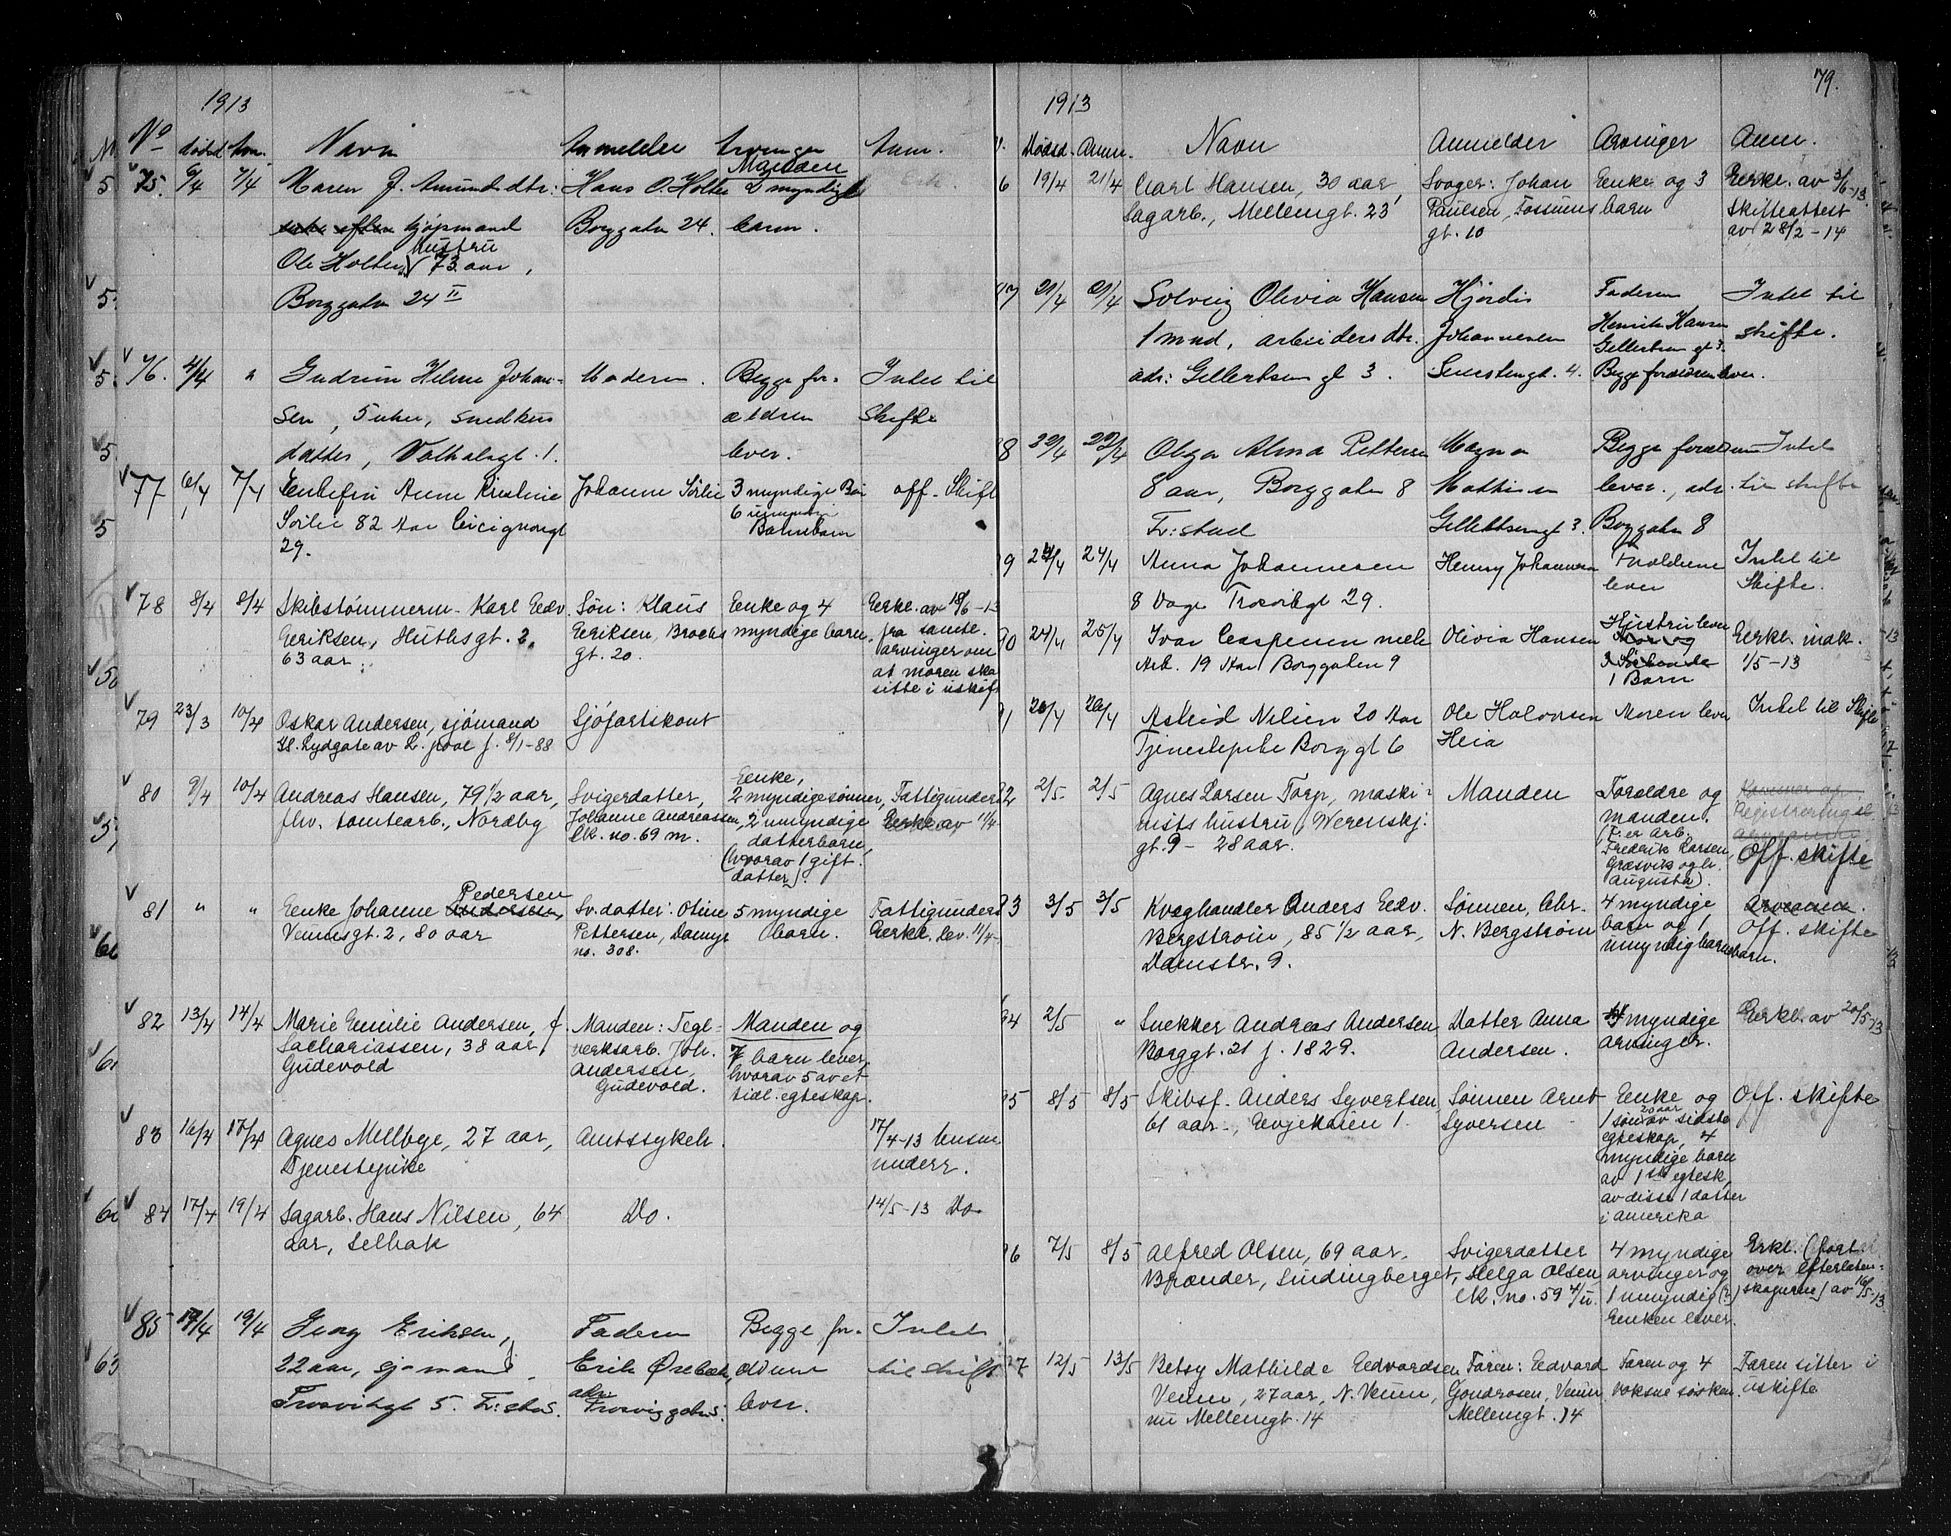 1913
No dødsd. Anm. Navn Anmelder Arvinger Anm.
75. 6/4 7/4 Maren J. Amundsdtr. Hans O Holte Manden
2 myndige
enke efter kjøpmand Borggaten 24. barn.
Hustru
Ole Holten, 73 aar,
Borggaten 24 II
76. 4/4 " Gudrun Helene Johan- Moderen. Begge for- Intet til
sen, 5 uker, snedkers ældren Skifte
datter, Valhalsgt. 1. lever.
77 6/4 7/4 Enkefru Anne Kristine Johanne Sørlie 3 myndige Børn off. Skift
Sørlie 82 Aar Cicignongt 6 umyndige
29. Barnebarn
78 8/4 8/4 Skibstømmerm. Karl Edv. Søn: Klaus Enke og 4 Erkl. av 18/6-13
Eriksen, Huthsgt. 2, Eriksen, Brochs myndige barn. fra samtl.
63 aar. gt. 20. arvinger om
at moren ska
sitte i uskift
79 23/3 10/4 Oskar Andersen, sjømand Sjøfartskont
Kl. Lydgate av L.pool f. 8/1-88
80 9/4 10/4 Andreas Hansen, 79 1/2 aar, Svigerdatter, Enke,
2 myndige sønner, Fattigunders
fhv. tomtearb., Nordby Johanne Andreassen, 2 umyndige Erkl. av 11/4
Lk. no. 69 m. datterbarn,
(hvorav 1 gift.
datter).
81 " " Enke Johanne Andersen, Pedersen Sv.datter: Otine 5 myndige Fattigunders
Vennesgt. 2, 80 aar Pettersen, Damyr barn. Erkl. lev. 11/4
no. 308.
82 13/4 14/4 Marie Emilie Andersen, f. Manden: Tegl- Manden og
Sachariassen, 38 aar, verksarb. Joh. 7 barn lever,
Gudevold Andersen, hvorav 5 av et
Gudevold. tidl. egteskap.
83 16/4 17/4 Agnes Mellbye, 27 aar, Amtssykeh. 17/4-13
Tjenestepike underr.
84 17/4 19/4 Sagarb. Hans Nilsen, 64 Do. 14/5-13 Do
aar, Selbak
85 19/4 19/4 Georg Eriksen, Faderen Begge for- Intet
22 aar, sjømand, Erik Ørebæk, ældrene til skift
Trosvikgt 5. Fr:stad. adr. Trosviggaten 5. lever.
79.
1913
Dødsd. Anm. Navn Anmelder Arvinger Anm.
6 19/4 21/4 Carl Hansen, 30 aar, Svoger: Johan Enke og 3 Erkl. av 3/6-13.
Sagarb., Mellemgt. 23 Paulsen, Fossums barn Skifteattest
gt. 10 av 28/2-14
87 21/4 21/4 Solveig Olivia Hansen Hjørdis Faderen Intet til
1 mnd, arbeiders dtr. Johannesen Henrik Hansen skifte.
Gellertsen gt 3.
adr: Gellertsen gt 3. Begge forældren lever.
8 22/4 22/4 Olga Alma Pettersen Magna Begge forældrene Intet
8 aar, Borggaten 8 Mathisen lever., adr. til skifte
Fr:stad Gellertsengt 3. Borggaten 8
9 24/4 24/4 Anna Johannesen Henry Johannesen Forældrene Intet til
lever Skifte.
8 Dage Trosvikgt 29.
90 24/4 25/4 Ivar Caspersen Olivia Hansen Hustru lever Erkl. indk.
Arb. 19 Aar Borggaten 9 Mor og 1/5-13
3 Søskende
1 Barn
91 26/4 26/4 Astrid Nilsen 20 Aar Ole Halvorsen Moren lever Intet til Skifte
Tjenestepike Borggt 6 Heia
92 2/5. 2/5 Agnes Larsen Torp, maski- Manden Forældre og
nists hustru, Werenskj. manden. Registrering
gt. 9 - 28 aar. (F. er arb. Off. skifte
Frederik Larsen,
Græsvik og h.
Augusta).
93 3/5 3/5 Kvæghandler Anders Edv. Sønnen, Chr. 4 myndige
Bergstrøm, 85 1/2 aar, N. Bergstrøm barn og 1 Off. skifte
Damstr. 9. umyndig barnebarn.
94 2/5 " Snekker Andreas Andersen Datter Anna myndige Erkl. av 20/5-13
Borggt. 21 f. 1829. Andersen. arvinger.
95 8/5 8/5 Skibsf. Anders Syvertsen, Sønnen Arnt Enke og Off. skifte
61 aar, Evjekaien 1. Syversen 1 søn 20 aar av sidste
egteskap, 4
myndige barn
av 1ste egtesk,
av disse 1 datter
i Amerika
96 7/5 8/5 Alfred Olsen, 69 aar, Svigerdatter 4 myndige Erkl. (fort.
Brænder, Sindingberget, Helga Olsen, arvinger og over efterlaten-
Lk. no. 59 1 umyndig (?) skapene) av 16/5-13
Enken lever.
97 12/5 13/5 Betsy Mathilde Edvardsen Faren: Edvard Faren og 4 Faren sitter i
Veum, 27 aar, N. Veum, Gondrosen, Veum, voksne søsken. uskifte
nu Mellemgt. 14 Mellemgt. 14